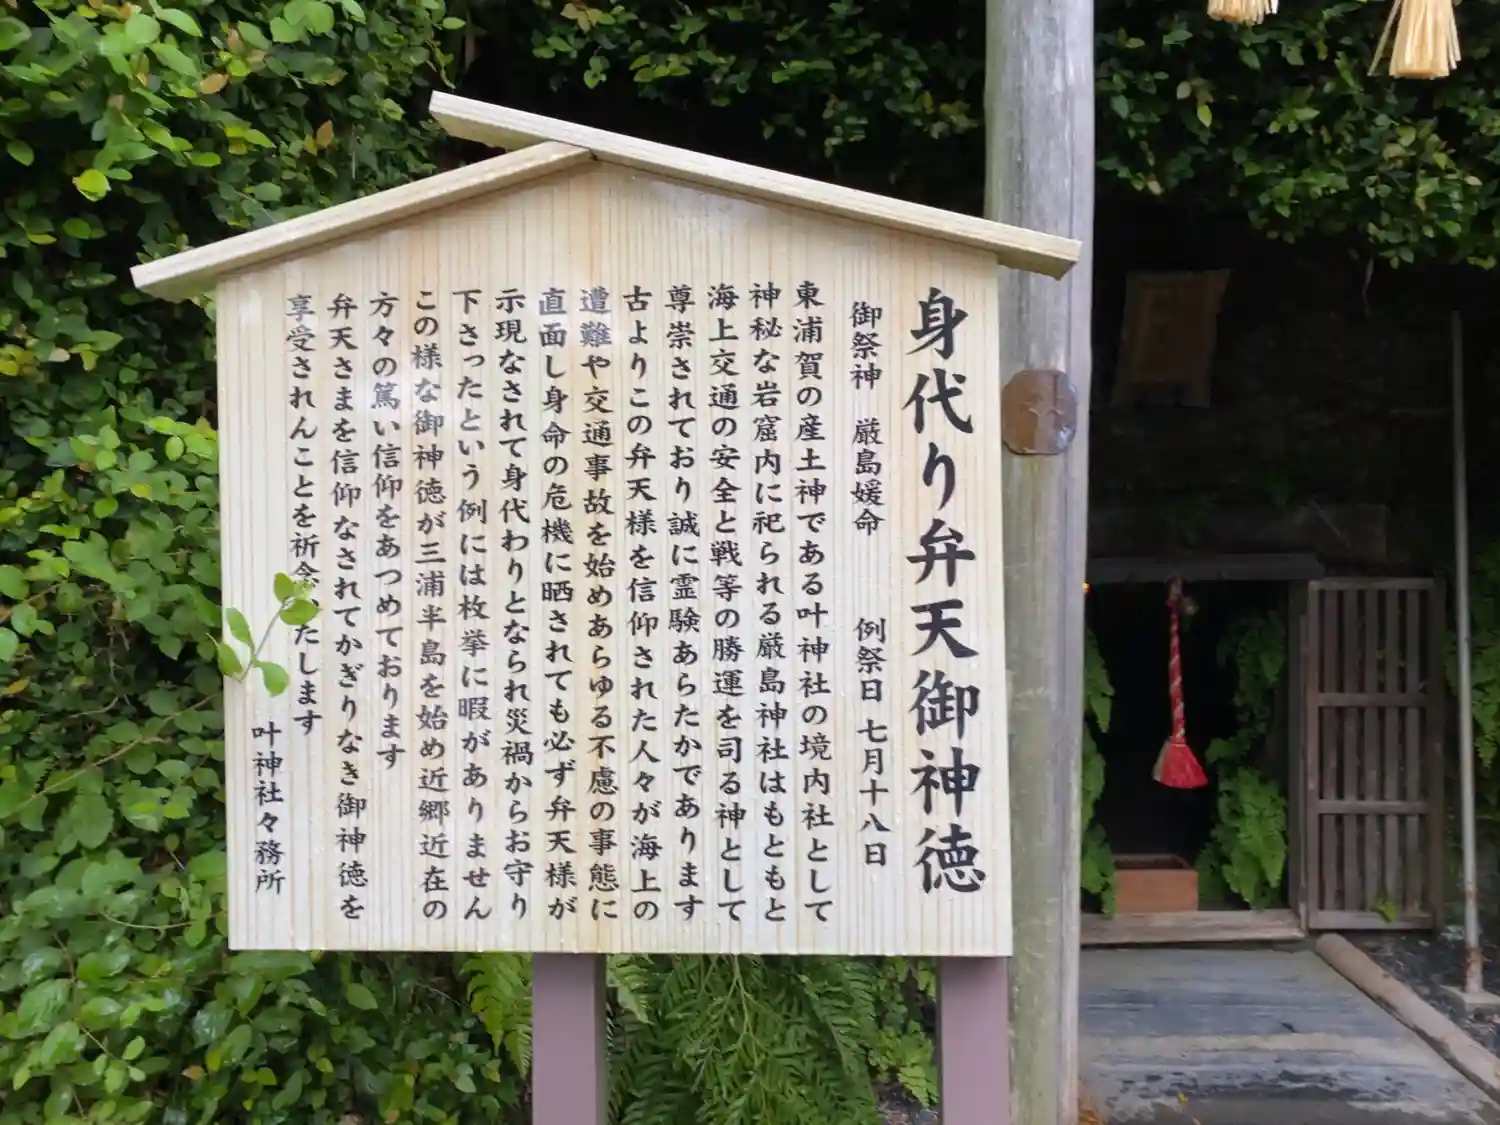 身代り弁天御神徳
御祭神 厳島媛命 例祭日 七月十八日
東浦賀の産土神である叶神社の境内社として
神秘な岩窟内に祀られる厳島神社はもともと
海上交通の安全と戦等の勝運を司る神として
尊崇されており誠に霊験あらたかであります
古よりこの弁天様を信仰された人々が海上の
遭難や交通事故を始めあらゆる不慮の事態に
直面し身命の危機に晒されても必ず弁天様が
示現なされて身代わりとなられ災禍からお守り
下さったという例には枚挙に暇がありません
この様な御神徳が三浦半島を始め近郷近在の
方々の篤い信仰をあつめております
弁天さまを信仰なされてかぎりなき御神徳を
享受されんことを祈念いたします
叶神社々務所